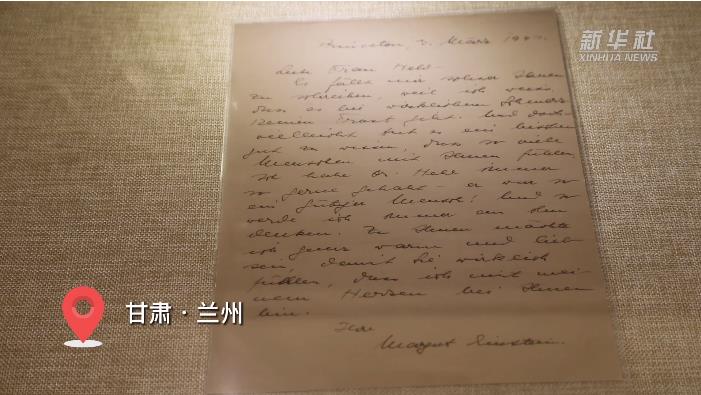 新华社
XINHUA NEWS
Princeton, 3. März 194
Liebe Frau Held –
Es fällt mir schwer Ihnen
zu schreiben, weil ich weiss,
dass es bei wirklichem Schmerz
keinen Trost gibt. Und doch
vielleicht tut es ein bisschen
gut zu wissen, dass so viele
Menschen mit Ihnen fühlen
Ich habe Dr. Held immer
so gerne gehabt – er war so
ein gütiger Mensch! Und so
werde ich immer an ihn
denken. Zu Ihnen möchte
ich ganz warm und lieb
sein, damit Sie wirklich
fühlen, dass ich mit mei-
nem Herzen bei Ihnen
bin.
Ihre
Margot Einstein.
甘肃·兰州